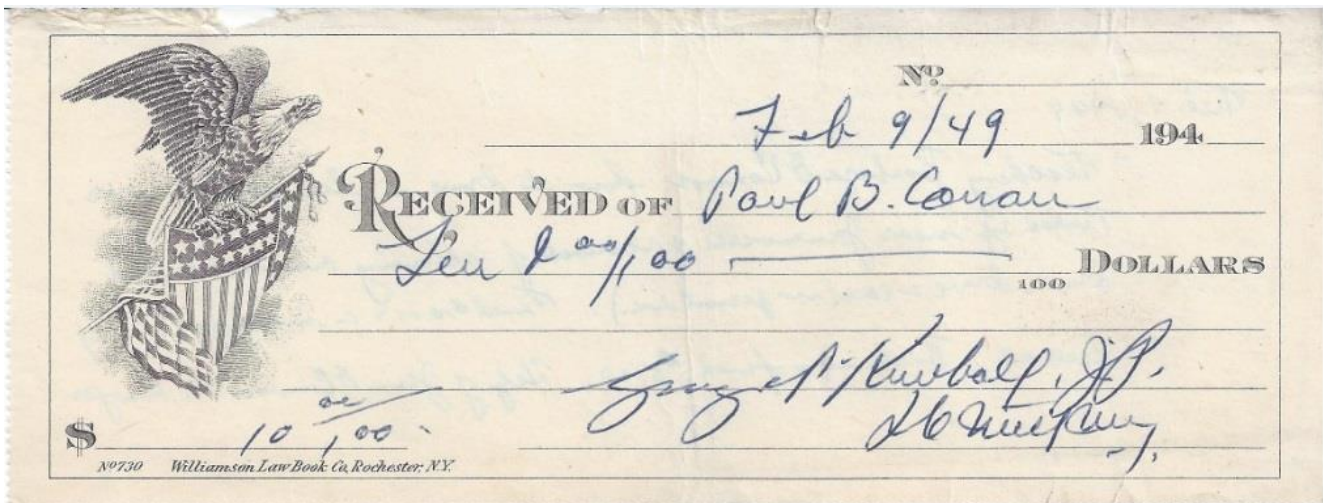 No.
Feb 9/49 194
RECEIVED OF Paul B. Conan
Ten & 00/100 DOLLARS
100
George P. Kimball, J.P.
$ 10 00/100
No 730 Williamson Law Book Co, Rochester, N.Y.